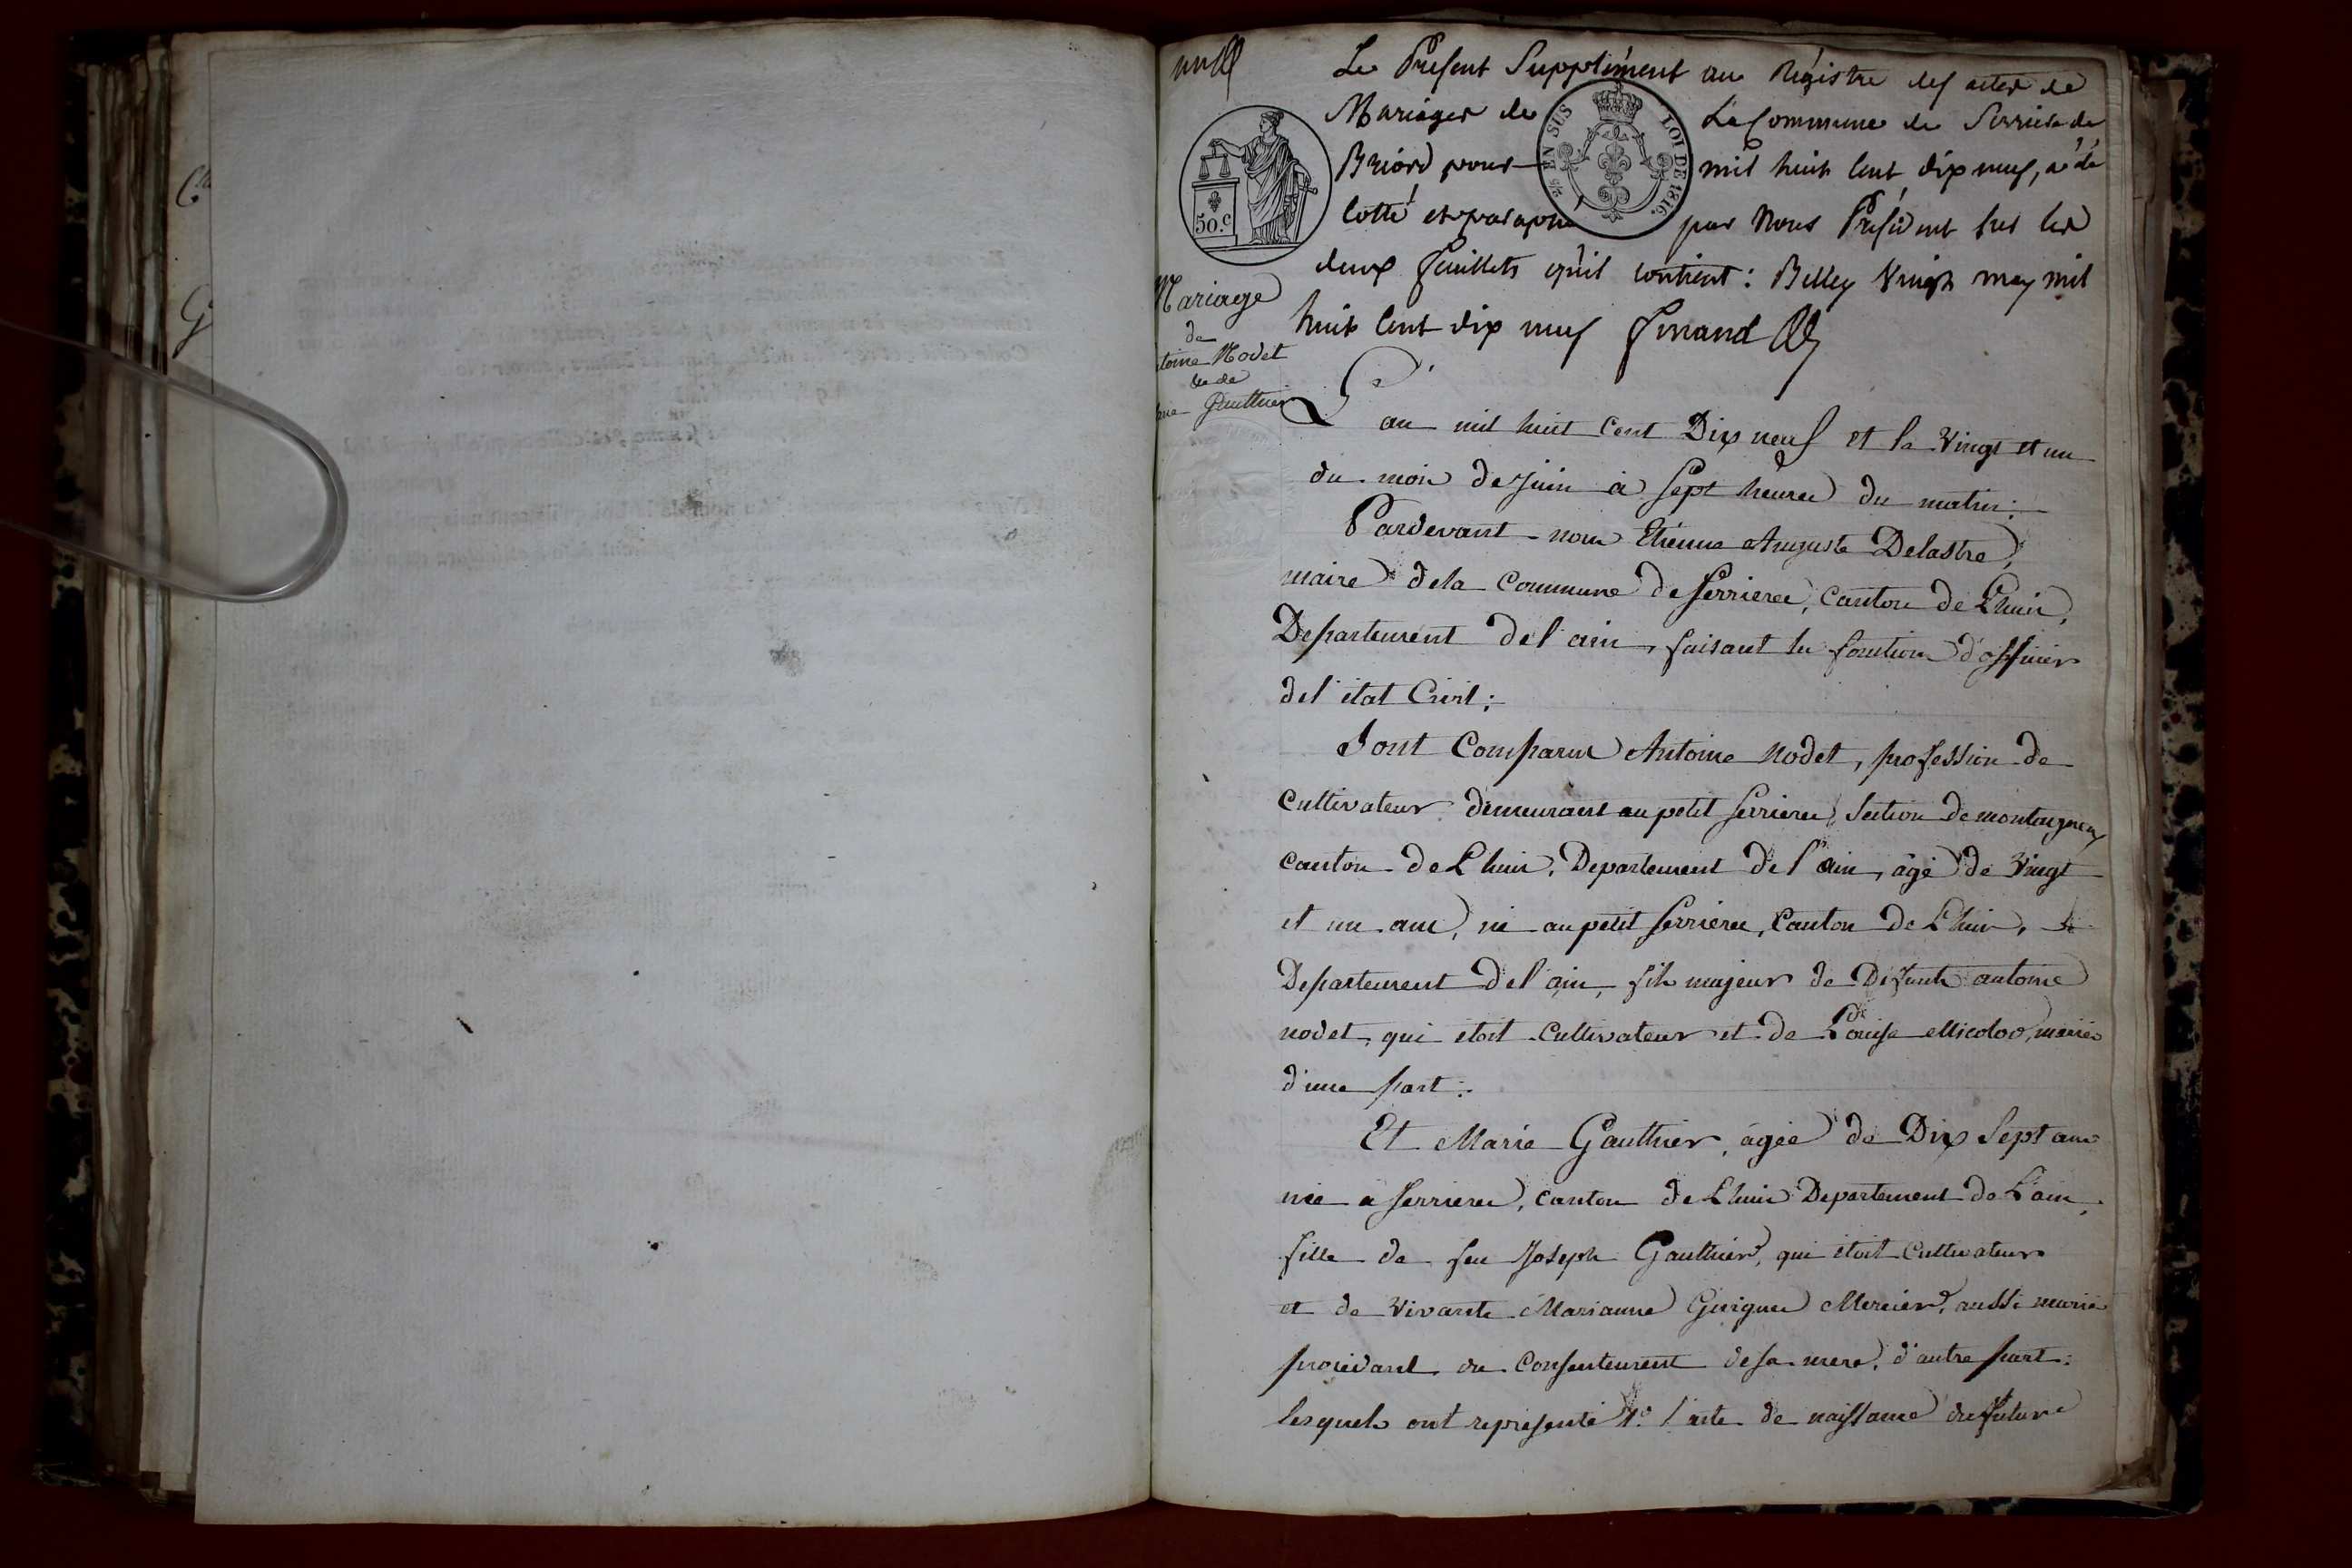 Le Présent Supplément au Régistre des actes de
Mariages de La Commune de Serriere de
Briord pour mil huit Cent dix neuf, a été
Cotté et paraphé par Nous Président sur les
deux feuillets qu'il contient : Belley Vingt may mil
huit Cent dix neuf
50.C
2/5 EN SUS LOI DE 1816.
Mariage
de
toine Nodet
et de
Gauthier
L'an mil huit Cent Dix neuf et le Vingt et un
du mois de juin à Sept heures du matin :
Pardevant nous Etienne Auguste Delastre,
maire de la Commune de Serrieres, canton de Lhuis,
Departement de l'ain, faisant les fonctions d'officier
de l'état Civil ;
Sont Comparus Antoine Nodet, profession de
Cultivateur demeurant au petit Serrieres, Section de montagneux
canton de Lhuis, Departement de l'ain, âgé de Vingt
et un ans, né au petit Serrieres, Canton de Lhuis,
Departement de l'ain, fils majeur de Défunt antoine
nodet, qui étoit Cultivateur et de Louise Micoloo, mariés
d'une part :
Et Marie Gauthier, âgée de Dix Sept ans
née a Serrieres, canton de Lhuis Departement de L'ain,
fille de feu Joseph Gauthier, qui étoit Cultivateur
et de Vivante Marianne Guigue Mercier, aussi mariés
procédant du Consentement de sa mere, d'autre part :
lesquels ont représenté 1.° l'acte de naissance du futur